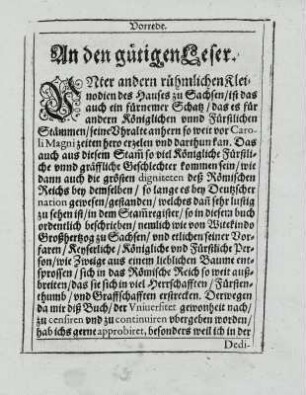 Vorrede.
An den gütigen Leser.
UNter andern rühmlichen Klei-
nodien des Hauses zu Sachsen / ist das
auch ein fürnemer Schatz / das es für
andern Königlichen vnnd Fürstlichen
Stämmen / seine Vhralte anhern so weit vor Caro-
li Magni zeiten hero erzelen vnd darthun kan. Das
auch aus diesem Stam̃ so viel Königliche Fürstli-
che vnnd gräffliche Geschlechter kommen sein / wie
dann auch die grösten digniteten deß Römischen
Reichs bey demselben / so lange es bey Deutscher
nation gewesen / gestanden / welches dañ sehr lustig
zu sehen ist / in dem Stam̃register / so in diesem buch
ordentlich beschrieben / nemlich wie von Witekindo
Großhertzog zu Sachsen / vnd etlichen seiner Vor-
faren / Keyserliche / Königliche vnd Fürstliche Per-
sonen / wie Zweige aus einem lieblichen Baume ent-
sprossen / sich in das Römische Reich so weit auß-
breiten / das sie sich in viel Herrschafften / Fürsten-
thumb / vnd Graffschafften erstrecken. Derwegen
da mir diß Buch / der Vniuersitet gewonheit nach /
zu censiren vnd zu continuiren vbergeben worden /
hab ichs gerne approbiret, besonders weil ich in der
Dedi-